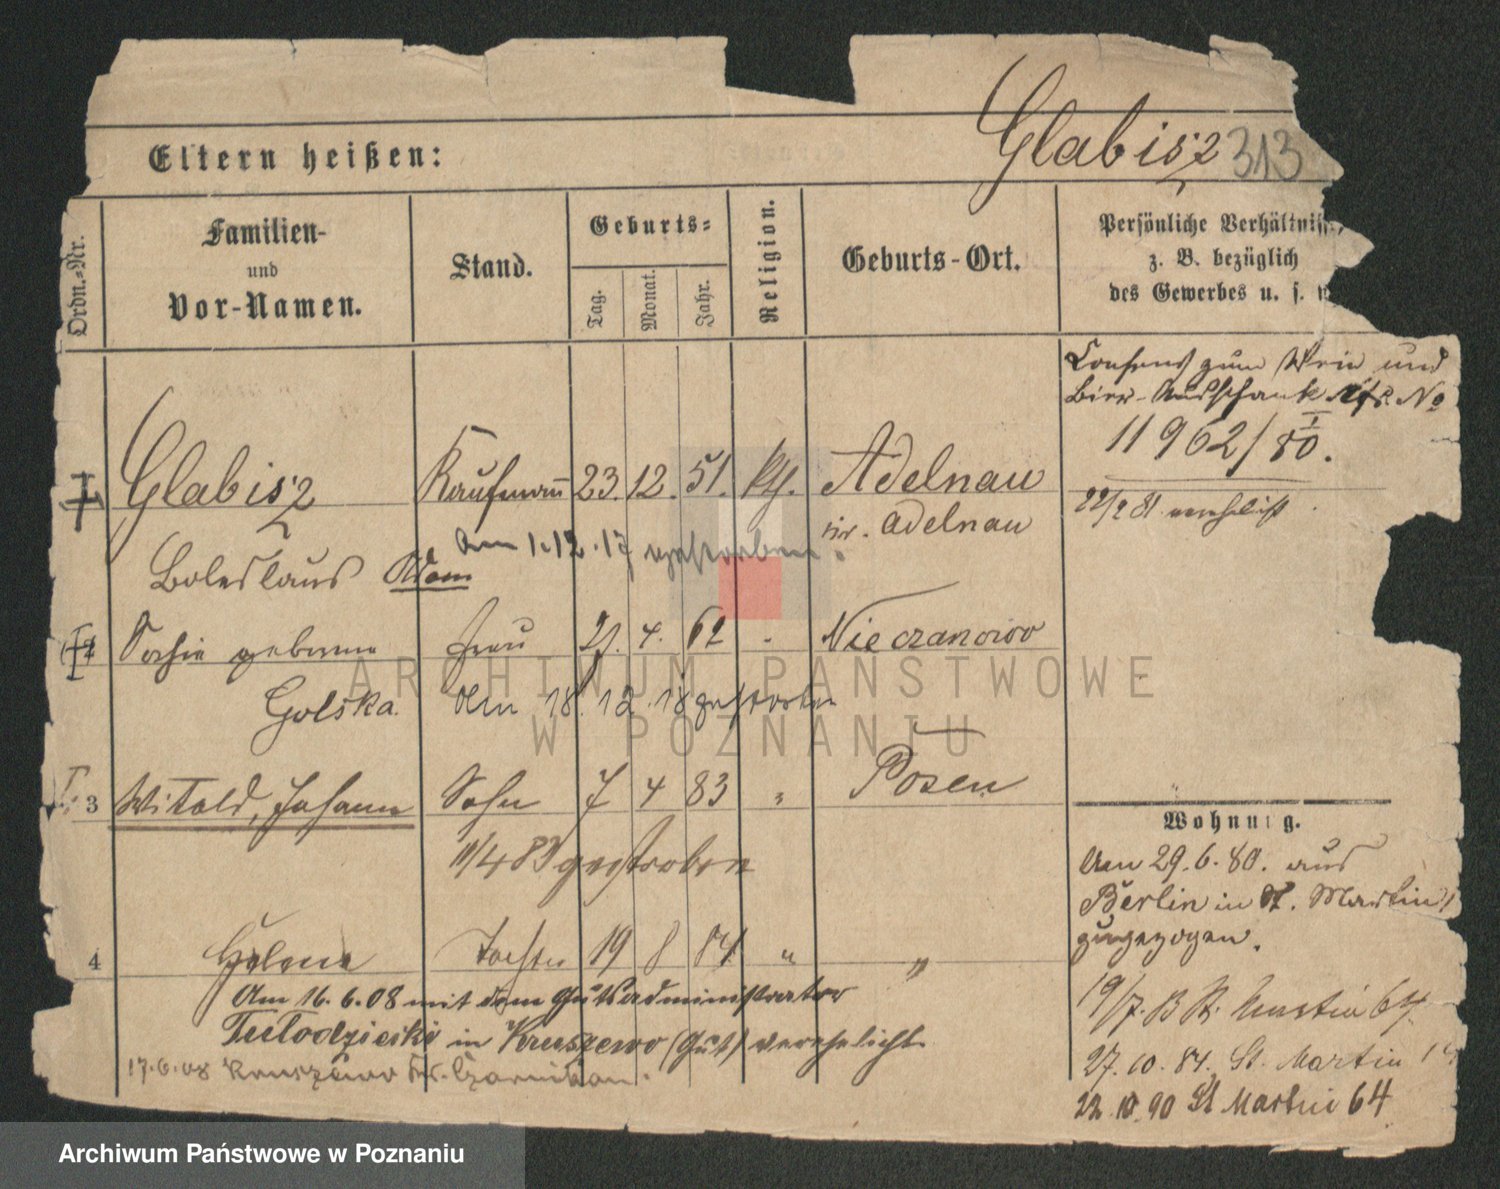 Glabisz 313
Eltern heißen:
Ordn.-Nr.
Familien-
und
Vor-Namen.
Stand.
Geburts-
Tag.
Monat.
Jahr.
Religion.
Geburts-Ort.
Persönliche Verhältniss
z. B. bezüglich
des Gewerbes u. s.
Consens zum Wein und
Bier-Ausschank No
11962/80.
22/2 81 verehelicht
Glabisz Kaufmann 23. 12. 51. kth. Adelnau
Kr. Adelnau
Boleslaus Adam
am 1.12.17 gestorben.
Sophie geborene Frau 4. 62 Nieczanowo
Golska. den 18.12.18 gestorben
3 Witold, Johann Sohn 7 4 83 " Posen
11/4 83 gestorben
4 Helene Tochter 19 8 84 " "
Am 16.6.08 mit dem Gutsadministrator
Tulodziecki in Kruszewo (Gut) verehelicht.
17.6.08 Kruszewo Kr. Czarnikau.
Wohnung.
Am 29.6.80. aus
Berlin in St. Martin
zugezogen.
19/7. St. Martin 64.
27.10.84. St. Martin
22.10.90 St Martin 64
ARCHIWUM PAŃSTWOWE
W POZNANIU
Archiwum Państwowe w Poznaniu